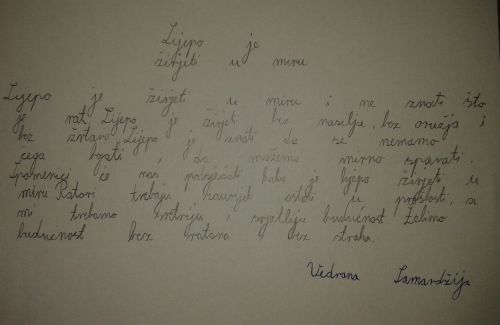 Lijepo je
živjeti u miru
Lijepo je živjeti u miru i ne znati što
je rat. Lijepo je živjeti bez nasilja, bez oružja i
bez žrtava. Lijepo je znati da se nemamo
čega bojati, da možemo mirno spavati.
Spomenici će nas podsjećati kako je lijepo živjeti u
miru. Ratovi trebaju zauvijek ostati u prošlosti, a
mi trebamo svetriju svjetliju budućnost. Želimo
budućnost bez ratova i bez straha.
Vedrana Samardžija